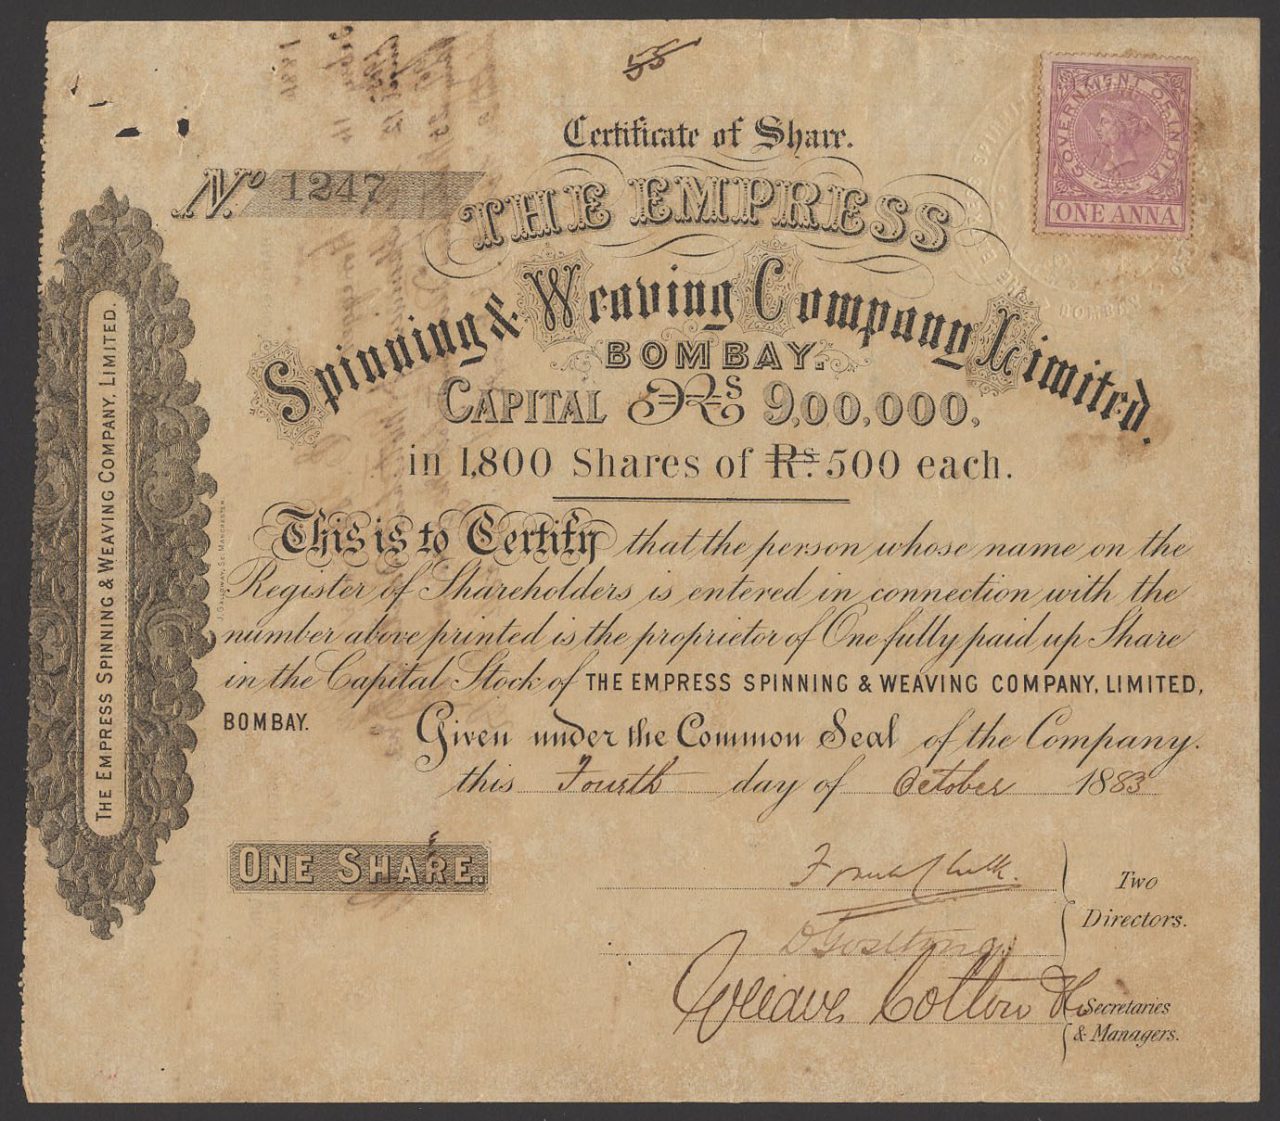 55
Certificate of Share.
No. 1247
THE EMPRESS
Spinning & Weaving Company Limited.
BOMBAY.
CAPITAL Rs 9,00,000,
in 1,800 Shares of Rs. 500 each.
This is to Certify that the person whose name on the
Register of Shareholders is entered in connection with the
number above printed is the proprietor of One fully paid up Share
in the Capital Stock of THE EMPRESS SPINNING & WEAVING COMPANY, LIMITED,
BOMBAY.
Given under the Common Seal of the Company.
this Fourth day of October 1883
ONE SHARE.
Two
Directors.
Greaves Cotton & Co
Secretaries
& Managers.
THE EMPRESS SPINNING & WEAVING COMPANY, LIMITED.
J. Galloway, Sc. Manchester.
GOVERNMENT OF INDIA
ONE ANNA
BOMBAY